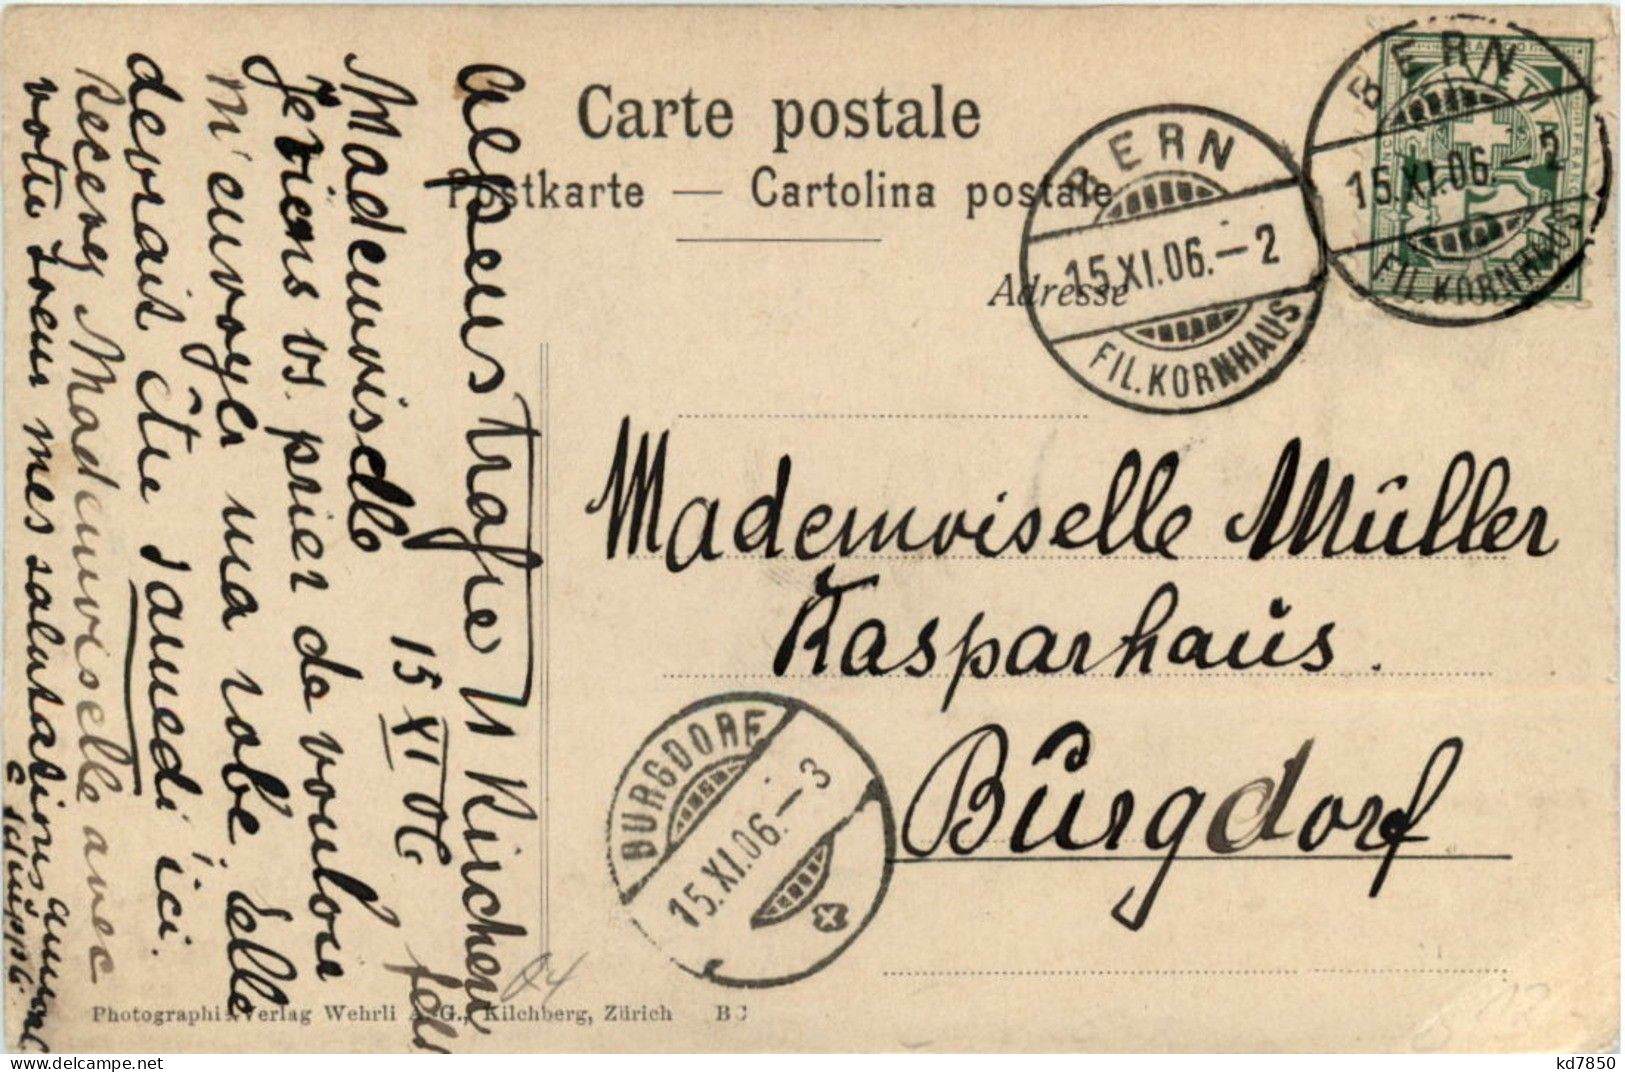 Carte postale
Postkarte — Cartolina postale
Adresse
BERN
15.XI.06.–2
FIL. KORNHAUS
BERN
15.XI.06.–2
FIL. KORNHAUS
Mademoiselle Müller
Kasparhaus.
Burgdorf
BURGDORF
15.XI.06.–3
15 XI 06
Mademoiselle
Je viens vs. prier de vouloir
m'envoyer ma robe. Elle
devrait être samedi ici.
Recevez Mademoiselle avec
votre soeur mes salutations
Photographie-Verlag Wehrli A.-G., Kilchberg, Zürich
kd7850